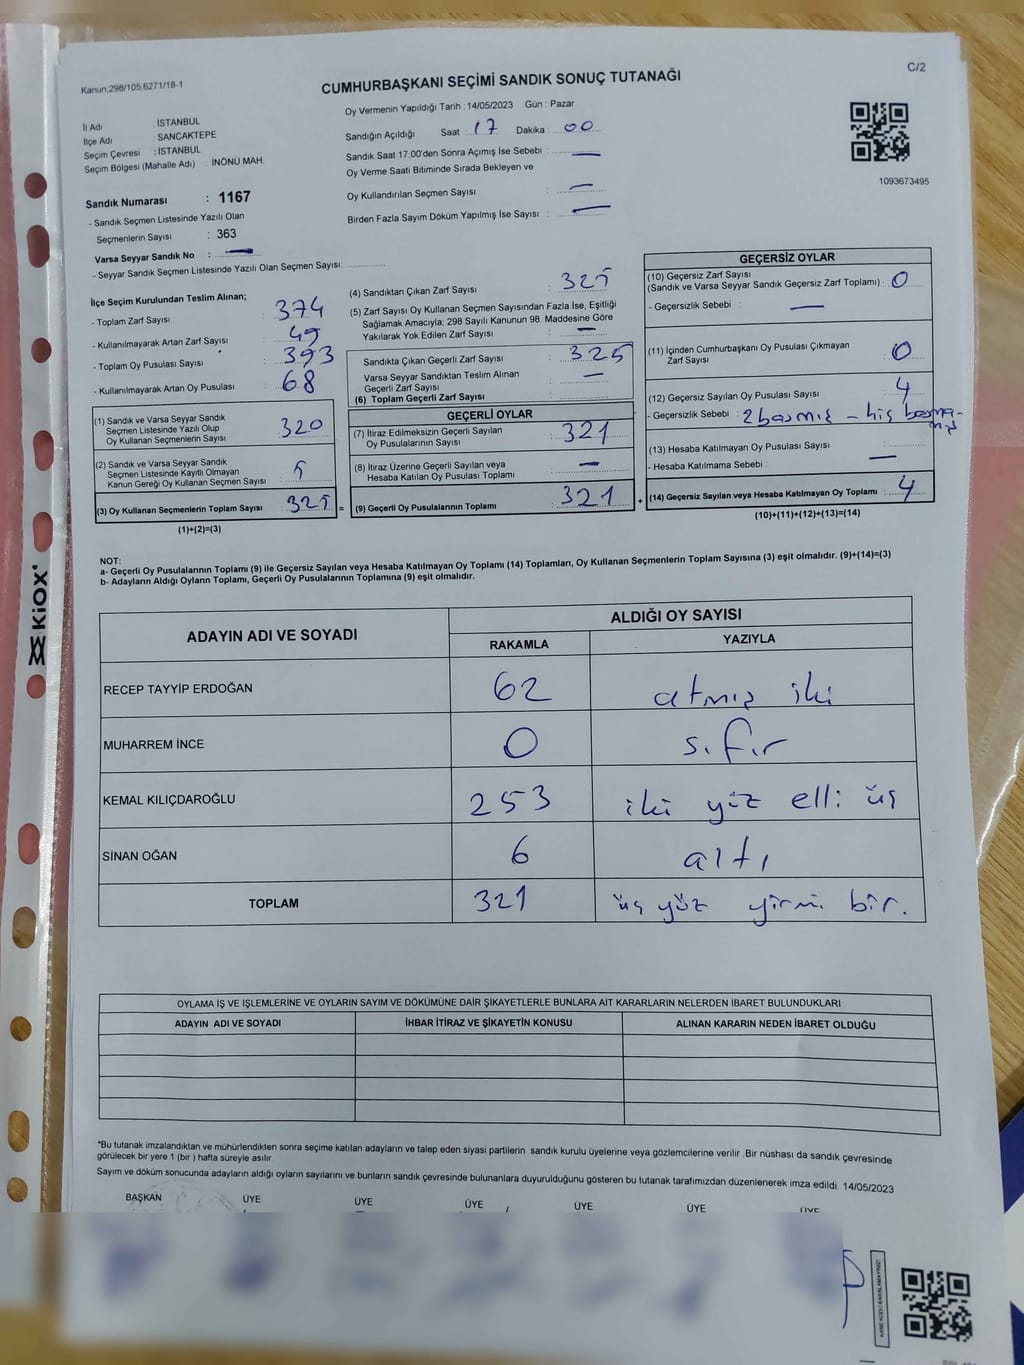 Kanun;298/105;6271/18-1
CUMHURBAŞKANI SEÇİMİ SANDIK SONUÇ TUTANAĞI
C/2
İl Adı İSTANBUL
İlçe Adı SANCAKTEPE
Seçim Çevresi : İSTANBUL
Seçim Bölgesi (Mahalle Adı) : İNÖNÜ MAH.
Oy Vermenin Yapıldığı Tarih : 14/05/2023 Gün : Pazar
Sandığın Açıldığı Saat : 17 Dakika : 00
Sandık Saat 17.00'den Sonra Açımış İse Sebebi : —
Oy Verme Saati Bitiminde Sırada Bekleyen ve
Oy Kullandırılan Seçmen Sayısı : —
Birden Fazla Sayım Döküm Yapılmış İse Sayısı : —
1093673495
Sandık Numarası : 1167
- Sandık Seçmen Listesinde Yazılı Olan
Seçmenlerin Sayısı : 363
Varsa Seyyar Sandık No : —
- Seyyar Sandık Seçmen Listesinde Yazılı Olan Seçmen Sayısı:
İlçe Seçim Kurulundan Teslim Alınan;
- Toplam Zarf Sayısı : 374
- Kullanılmayarak Artan Zarf Sayısı : 49
- Toplam Oy Pusulası Sayısı : 393
- Kullanılmayarak Artan Oy Pusulası : 68
(1) Sandık ve Varsa Seyyar Sandık
Seçmen Listesinde Yazılı Olup
Oy Kullanan Seçmenlerin Sayısı : 320
(2) Sandık ve Varsa Seyyar Sandık
Seçmen Listesinde Kayıtlı Olmayan
Kanun Gereği Oy Kullanan Seçmen Sayısı : 5
(3) Oy Kullanan Seçmenlerin Toplam Sayısı : 325 =
(1)+(2)=(3)
(4) Sandıktan Çıkan Zarf Sayısı : 325
(5) Zarf Sayısı Oy Kullanan Seçmen Sayısından Fazla İse, Eşitliği
Sağlamak Amacıyla; 298 Sayılı Kanunun 98. Maddesine Göre
Yakılarak Yok Edilen Zarf Sayısı : —
Sandıkta Çıkan Geçerli Zarf Sayısı : 325
Varsa Seyyar Sandıktan Teslim Alınan
Geçerli Zarf Sayısı : —
(6) Toplam Geçerli Zarf Sayısı :
GEÇERLİ OYLAR
(7) İtiraz Edilmeksizin Geçerli Sayılan
Oy Pusulalarının Sayısı : 321
(8) İtiraz Üzerine Geçerli Sayılan veya
Hesaba Katılan Oy Pusulası Toplamı : —
(9) Geçerli Oy Pusulalarının Toplamı : 321 +
GEÇERSİZ OYLAR
(10) Geçersiz Zarf Sayısı
(Sandık ve Varsa Seyyar Sandık Geçersiz Zarf Toplamı) : 0
- Geçersizlik Sebebi : —
(11) İçinden Cumhurbaşkanı Oy Pusulası Çıkmayan
Zarf Sayısı : 0
(12) Geçersiz Sayılan Oy Pusulası Sayısı : 4
- Geçersizlik Sebebi : 2 basmış – hiç basma-
mış
(13) Hesaba Katılmayan Oy Pusulası Sayısı : —
- Hesaba Katılmama Sebebi :
(14) Geçersiz Sayılan veya Hesaba Katılmayan Oy Toplamı : 4
(10)+(11)+(12)+(13)=(14)
NOT:
a- Geçerli Oy Pusulalarının Toplamı (9) ile Geçersiz Sayılan veya Hesaba Katılmayan Oy Toplamı (14) Toplamları, Oy Kullanan Seçmenlerin Toplam Sayısına (3) eşit olmalıdır. (9)+(14)=(3)
b- Adayların Aldığı Oyların Toplamı, Geçerli Oy Pusulalarının Toplamına (9) eşit olmalıdır.
ADAYIN ADI VE SOYADI
ALDIĞI OY SAYISI
RAKAMLA YAZIYLA
RECEP TAYYİP ERDOĞAN 62 atmış iki
MUHARREM İNCE 0 sıfır
KEMAL KILIÇDAROĞLU 253 iki yüz elli üç
SİNAN OĞAN 6 altı
TOPLAM 321 üç yüz yirmi bir.
OYLAMA İŞ VE İŞLEMLERİNE VE OYLARIN SAYIM VE DÖKÜMÜNE DAİR ŞİKAYETLERLE BUNLARA AİT KARARLARIN NELERDEN İBARET BULUNDUKLARI
ADAYIN ADI VE SOYADI İHBAR İTİRAZ VE ŞİKAYETİN KONUSU ALINAN KARARIN NEDEN İBARET OLDUĞU
*Bu tutanak imzalandıktan ve mühürlendikten sonra seçime katılan adayların ve talep eden siyasi partilerin sandık kurulu üyelerine veya gözlemcilerine verilir .Bir nüshası da sandık çevresinde
görülecek bir yere 1 (bir ) hafta süreyle asılır.
Sayım ve döküm sonucunda adayların aldığı oyların sayılarını ve bunların sandık çevresinde bulunanlara duyurulduğunu gösteren bu tutanak tarafımızdan düzenlenerek imza edildi. 14/05/2023
BAŞKAN ÜYE ÜYE ÜYE ÜYE ÜYE ÜYE
KiOX